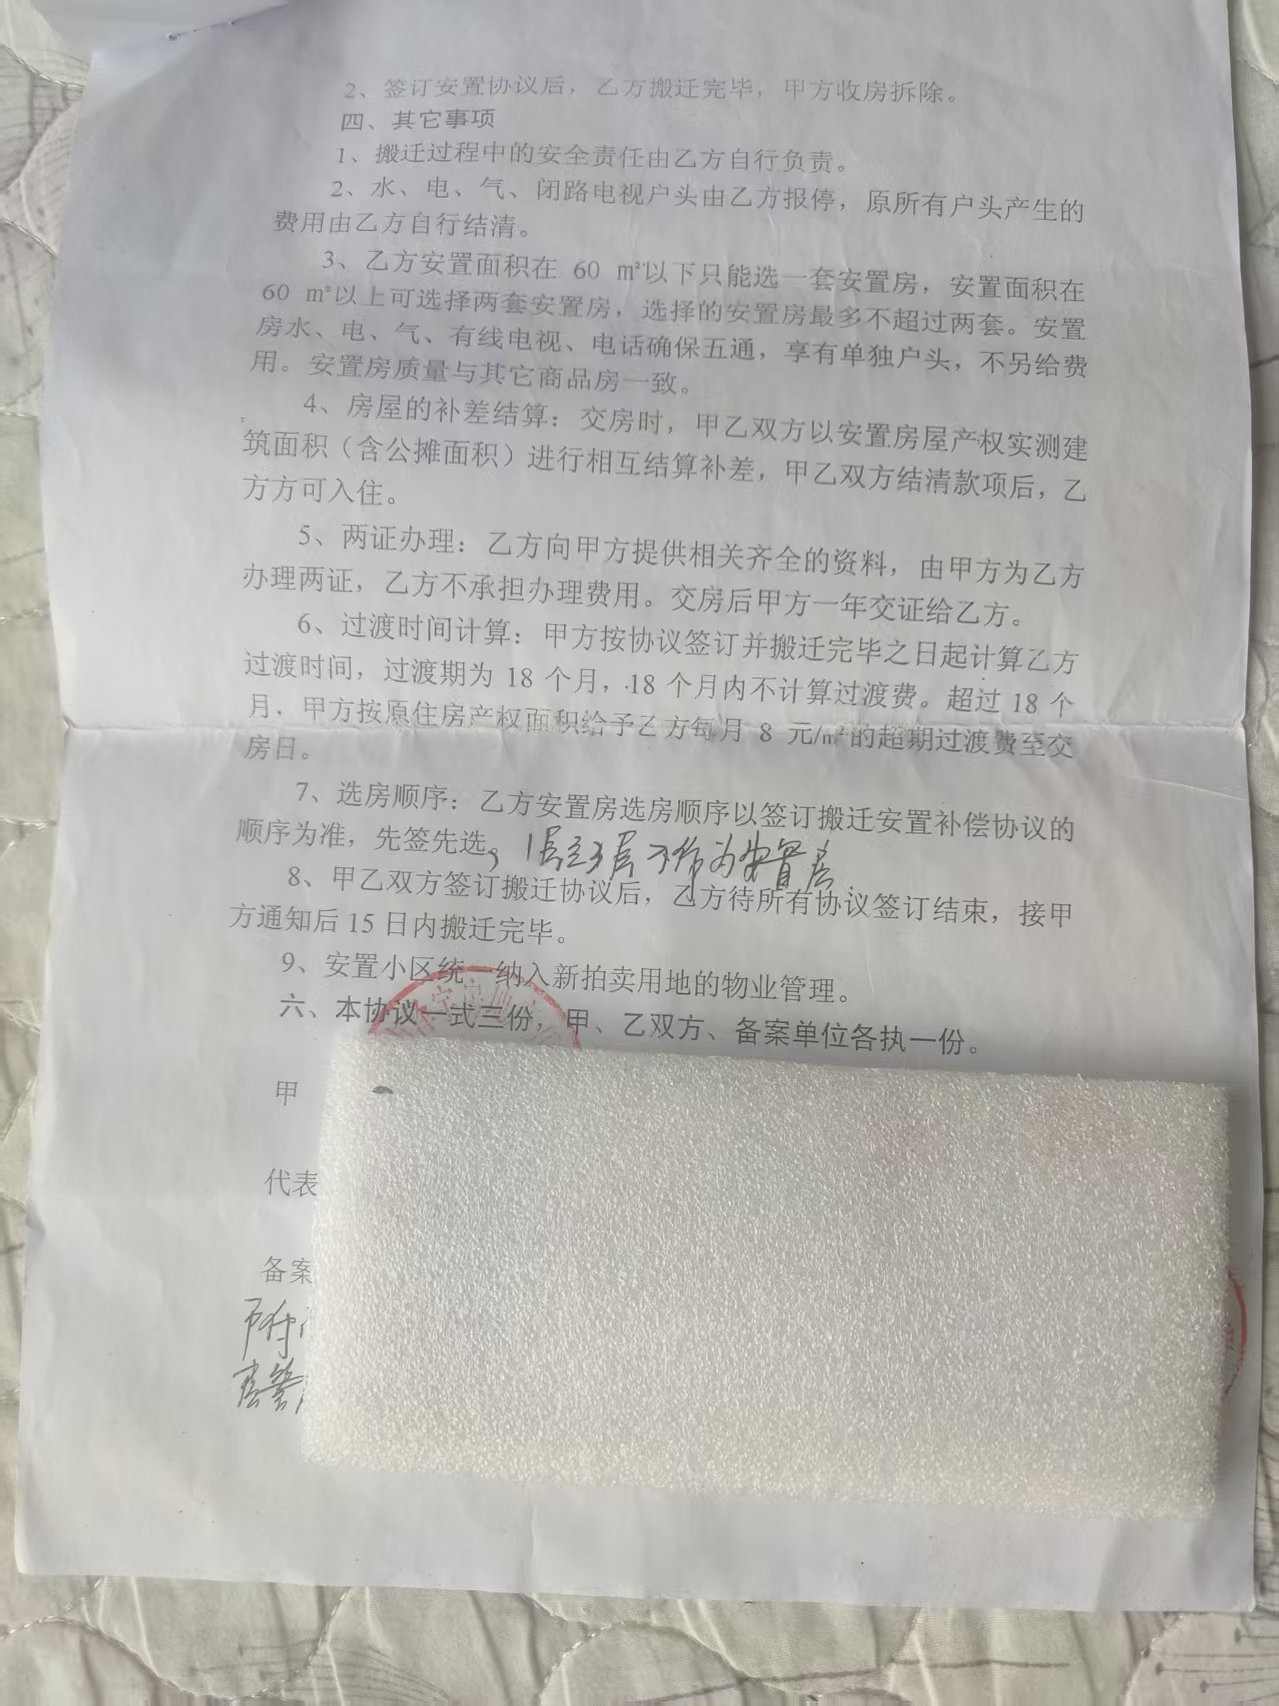 2、签订安置协议后，乙方搬迁完毕，甲方收房拆除。
四、其它事项
1、搬迁过程中的安全责任由乙方自行负责。
2、水、电、气、闭路电视户头由乙方报停，原所有户头产生的
费用由乙方自行结清。
3、乙方安置面积在 60 ㎡以下只能选一套安置房，安置面积在
60 ㎡以上可选择两套安置房，选择的安置房最多不超过两套。安置
房水、电、气、有线电视、电话确保五通，享有单独户头，不另给费
用。安置房质量与其它商品房一致。
4、房屋的补差结算：交房时，甲乙双方以安置房屋产权实测建
筑面积（含公摊面积）进行相互结算补差，甲乙双方结清款项后，乙
方方可入住。
5、两证办理：乙方向甲方提供相关齐全的资料，由甲方为乙方
办理两证，乙方不承担办理费用。交房后甲方一年交证给乙方。
6、过渡时间计算：甲方按协议签订并搬迁完毕之日起计算乙方
过渡时间，过渡期为 18 个月，18 个月内不计算过渡费。超过 18 个
月，甲方按原住房产权面积给予乙方每月 8 元/㎡的超期过渡费至交
房日。
7、选房顺序：乙方安置房选房顺序以签订搬迁安置补偿协议的
顺序为准，先签先选。1层至3层不作为安置房
8、甲乙双方签订搬迁协议后，乙方待所有协议签订结束，接甲
方通知后 15 日内搬迁完毕。
9、安置小区统一纳入新拍卖用地的物业管理。
六、本协议一式三份，甲、乙双方、备案单位各执一份。
甲
代表
备案